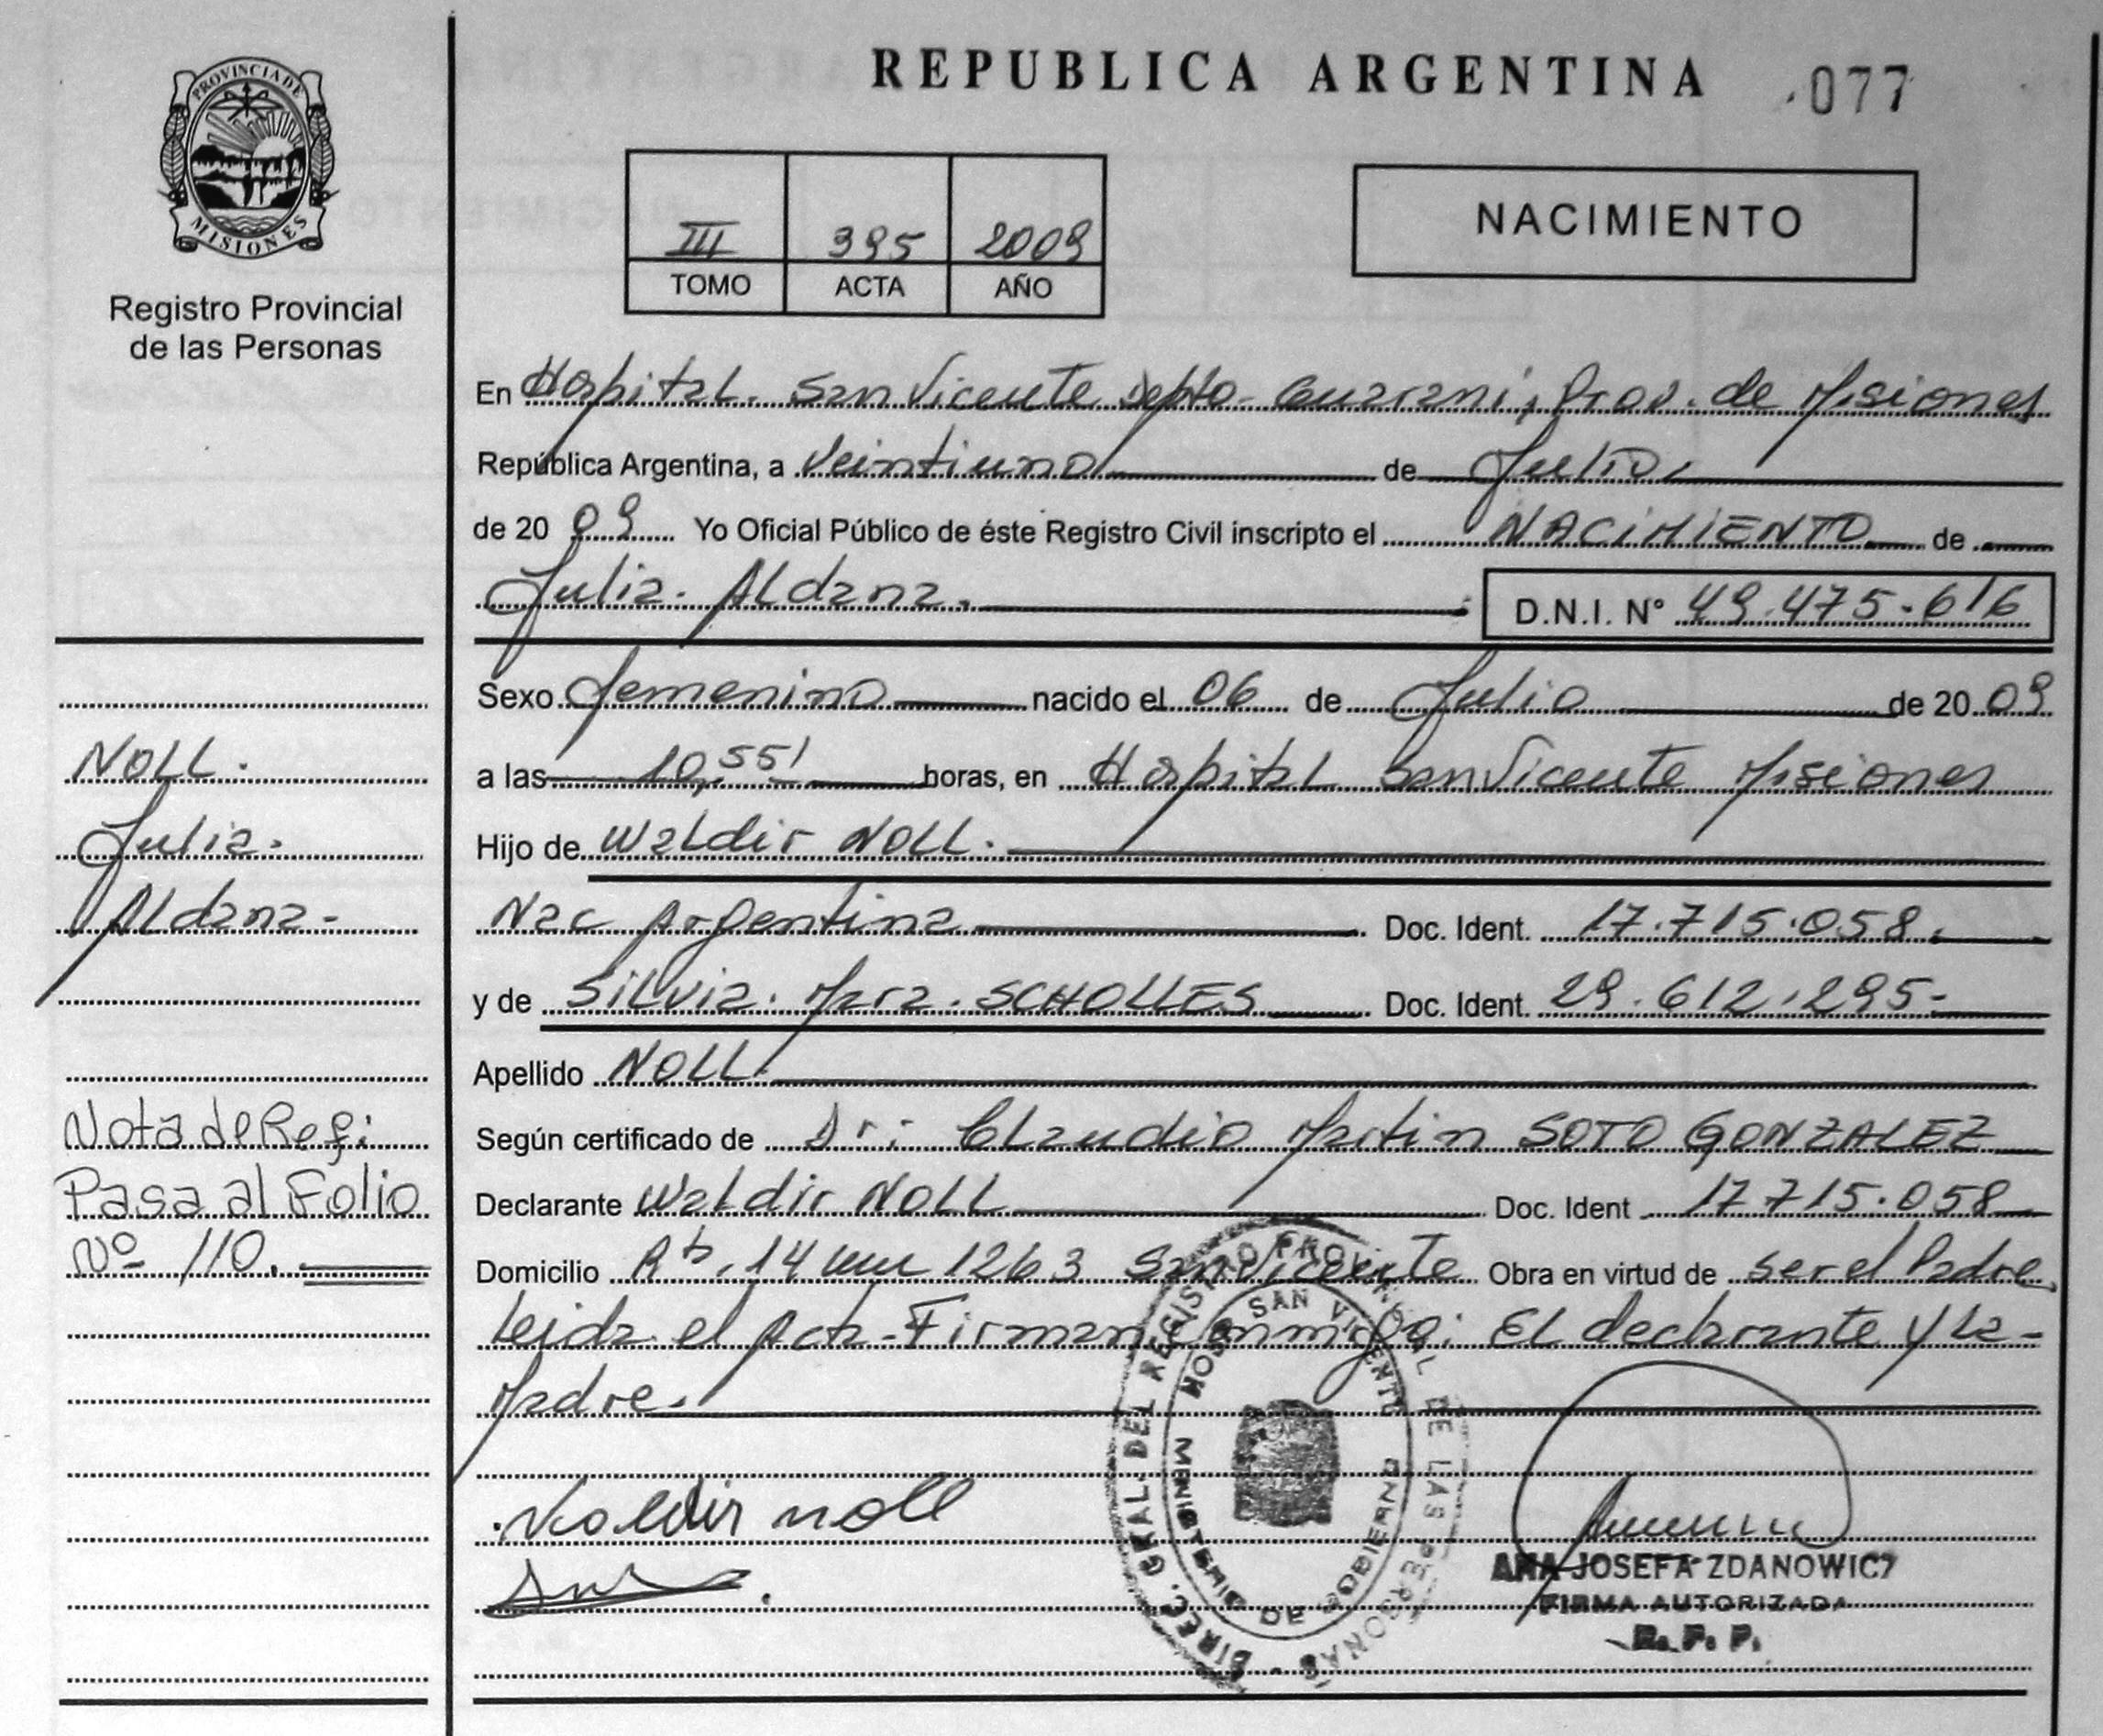 PROVINCIA DE
MISIONES
Registro Provincial
de las Personas
REPUBLICA ARGENTINA
077
III 395 2009
TOMO ACTA AÑO
NACIMIENTO
En Hospital. San Vicente Depto- Guarani, Prov. de Misiones
República Argentina, a Veintiuno de Julio.
de 20 09 Yo Oficial Público de éste Registro Civil inscripto el NACIMIENTO de
Julia. Aldana. D.N.I. N° 49.475.616
Sexo Femenino nacido el 06 de Julio de 20 09
a las 10,55' horas, en Hospital San Vicente Misiones
Hijo de Waldir NOLL.
Nac Argentina Doc. Ident. 17.715.058.
y de Silvia. Mara. SCHOLLES Doc. Ident. 29.612.295-
Apellido NOLL.
Según certificado de Dr: Claudio Martin SOTO GONZALEZ
Declarante Waldir NOLL Doc. Ident 17.715.058
Domicilio 14 km 1263 San Vicente Obra en virtud de ser el Padre
Leida el Acta- Firman Conmigo: El declarante y la-
Madre.
NOLL.
Julia.
Aldana-
Nota de Ref:
Pasa al Folio
Nº 110.
Waldir noll
DIREC. GRAL. DEL REGISTRO PROVINCIAL DE LAS PERSONAS
HOSP. SAN VICENTE
MINISTERIO DE GOBIERNO
ANA JOSEFA ZDANOWICZ
FIRMA AUTORIZADA
R. P. P.